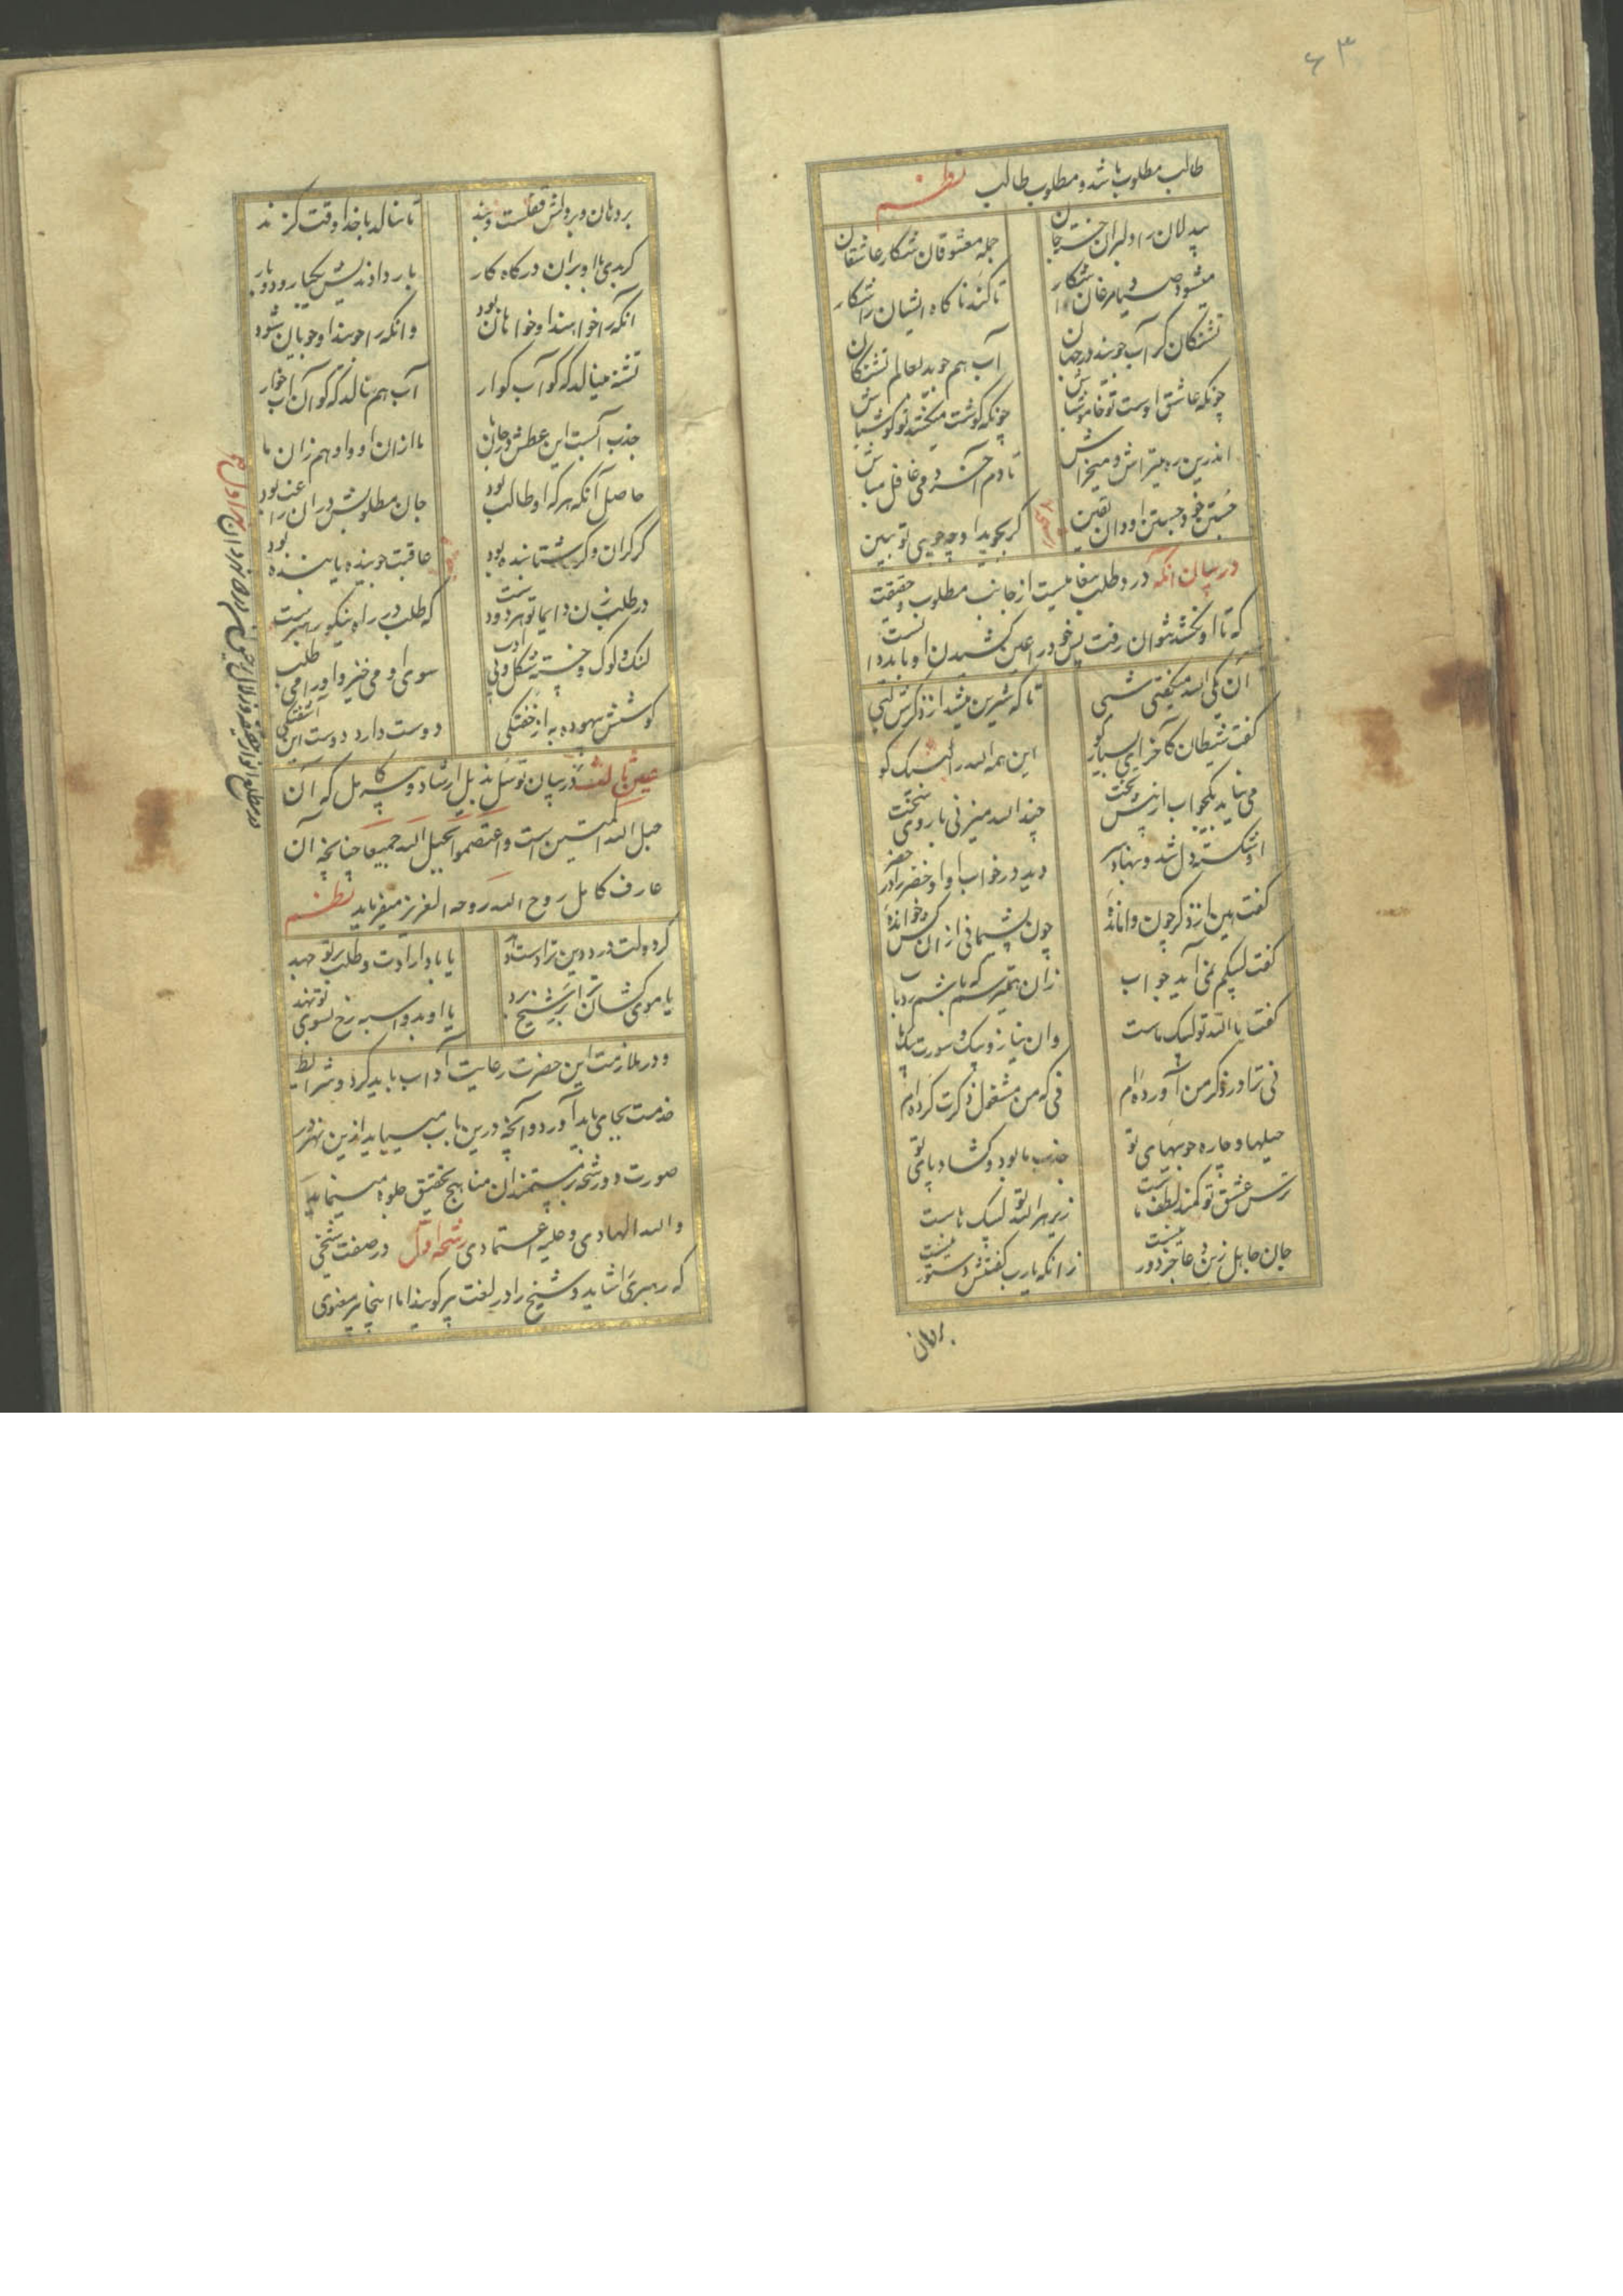 ۶۳
طالب مطلوب باشد و مطلوب طالب نظم
بیدلان را دلبران جسته بجان جمله معشوقان شکار عاشقان
میشود صیاد مرغان را شکار تا کند ناگاه ایشان را شکار
تشنگان گر آب جویند در جهان آب هم جوید بعالم تشنگان
چونکه عاشق اوست تو خاموش باش چونکه گوشت میکشد تو گوش باش
اندرین ره میتراش و میخراش تا دم آخر دمی غافل مباش
جستن خود جستن او دان یقین گر بجوید او چه جویی تو ببین
در بیان آنکه درد طلب پیغامیست از جانب مطلوب و حقیقت
که تا او نکشد نتوان رفت پس خود را عین کشیدن او باید دانست
آن یکی الله میگفتی شبی تا که شیرین میشد از ذکرش لبی
گفت شیطان کآخر ای بسیار گو این همه الله را لبیک کو
می نیاید یک جواب از پیش تخت چند الله میزنی با روی سخت
او شکسته دل شد و بنهاد سر دید در خواب او خضر را در خضر
گفت هین از ذکر چون وامانده چون پشیمانی از آن کش خوانده
گفت لبیکم نمی آید جواب زان همیترسم که باشم رد باب
گفت یا الله تو لبیک ماست وان نیاز و سوزت پیک ماست
نی ترا در ذکر من آورده ام نی که من مشغول ذکرت کرده ام
حیلها و چاره جوییهای تو جذب ما بود و گشاد پای تو
ترس و عشق تو کمند لطف ماست زیر هر الله تو لبیک ماست
جان جاهل زین دعا جز دور نیست زانکه یارب گفتنش دستور نیست
بر دهان
بر دهان و بر دلش قفلست و بند تا ننالد با خدا وقت گزند
آنکه را خواهند او خواهان بود وانکه را جویند او جویان شود
تشنه مینالد که کو آب گوار آب هم نالد که کو آن آب خوار
جذب آبست این عطش در جان ما ما از آن او و او هم زان ما
حاصل آنکه هر که او طالب بود جان مطلوبش در آن راغب بود
گر گران و گر شتابنده بود عاقبت جوینده یابنده بود
در طلب زن دایما تو هر دو دست که طلب در راه نیکو رهبرست
لنگ و لوک و خفته شکل و بی ادب سوی او می خیز و او را می طلب
دوست دارد دوست این آشفتگی کوشش بیهوده به از خفتگی
عین ثالث در بیان توسل بذیل ارشاد پیر کامل که آن
حبل الله المتین است واعتصموا بحبل الله جمیعا چنانچه آن
عارف کامل روح الله روحه العزیز میفرماید نظم
گر دولت درد دین ترا دست دهد یا باد ارادت و طلب بر تو جهد
یا موی کشان ترا بر شیخ برد یا او بدو اسبه رخ بسوی تو نهد
و در ملازمت این حضرت رعایت آداب باید کرد و شرایط
خدمت بجای باید آورد و آنچه درین باب میباید ازین نهر در
صورت دو رشحه بر مستمندان مناهج تحقیق جلوه مینماید
والله الهادی و علیه اعتمادی رشحه اول در صفت شیخی
که رهبری را شاید و شیخ را در لغت پیر گویند اما اینجا پیر معنوی